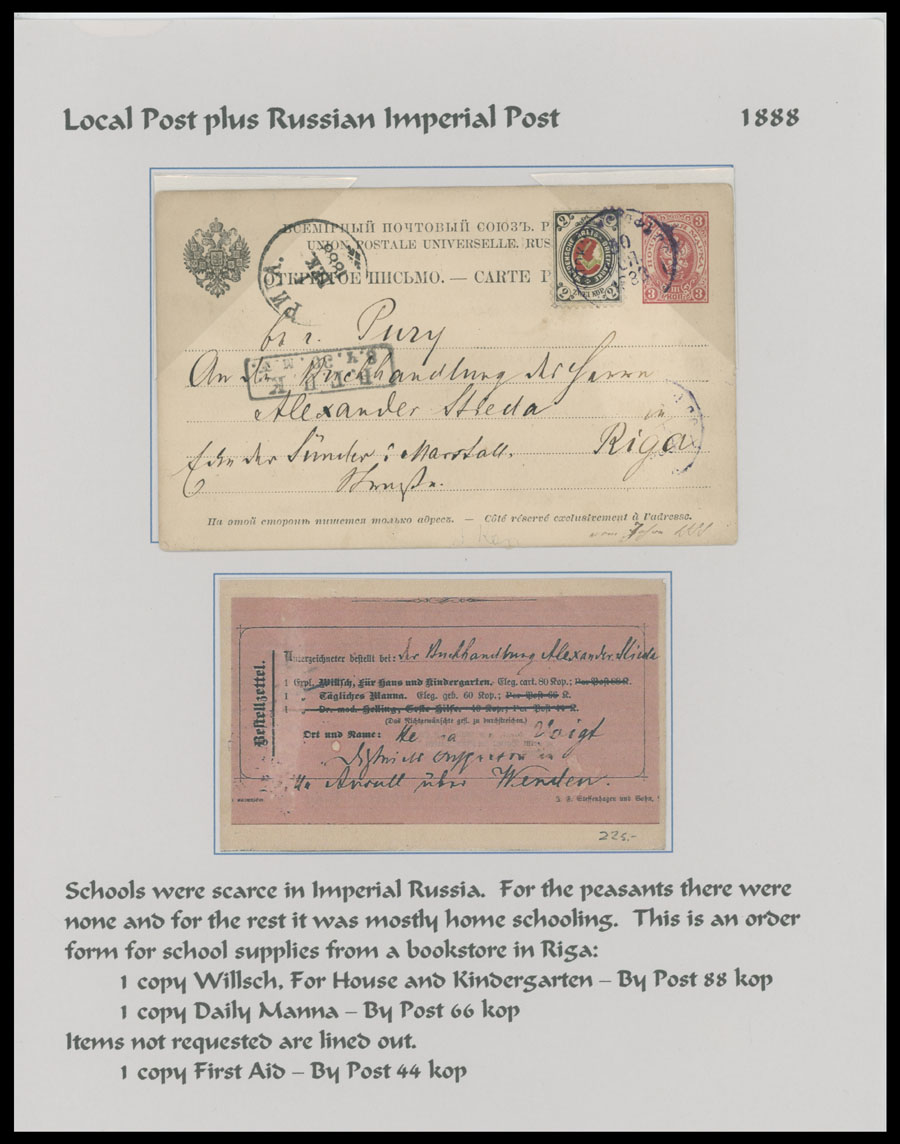 Local Post plus Russian Imperial Post 1888
ВСЕМІРНЫЙ ПОЧТОВЫЙ СОЮЗЪ. Р
UNION POSTALE UNIVERSELLE. RUS
ОТКРЫТОЕ ПИСЬМО. — CARTE P
РИГА.
1888
3 3
3 3
2 2
2 2
Pury
An die Buchhandlung des Herrn
Alexander Stieda
in
Riga
Ecke der Sünder & Marstall.
Strasse.
На этой сторонѣ пишется только адресъ. — Côté réservé exclusivement à l'adresse.
Bestellzettel.
Unterzeichneter bestellt bei: der Buchhandlung Alexander Stieda
1 Expl. Willsch, Für Haus und Kindergarten. Eleg. cart. 80 Kop.; Per Post 88 K.
1 „ Tägliches Manna. Eleg. geb. 60 Kop.; Per Post 66 K.
1 „ Dr. med. Helling, Erste Hilfe. 40 Kop.; Per Post 44 K.
(Das Nichtgewünschte gefl. zu durchstreichen.)
Ort und Name: Voigt
in
über Wenden.
J. F. Steffenhagen und Sohn,
225.-
Schools were scarce in Imperial Russia. For the peasants there were
none and for the rest it was mostly home schooling. This is an order
form for school supplies from a bookstore in Riga:
1 copy Willsch, For House and Kindergarten – By Post 88 kop
1 copy Daily Manna – By Post 66 kop
Items not requested are lined out.
1 copy First Aid – By Post 44 kop